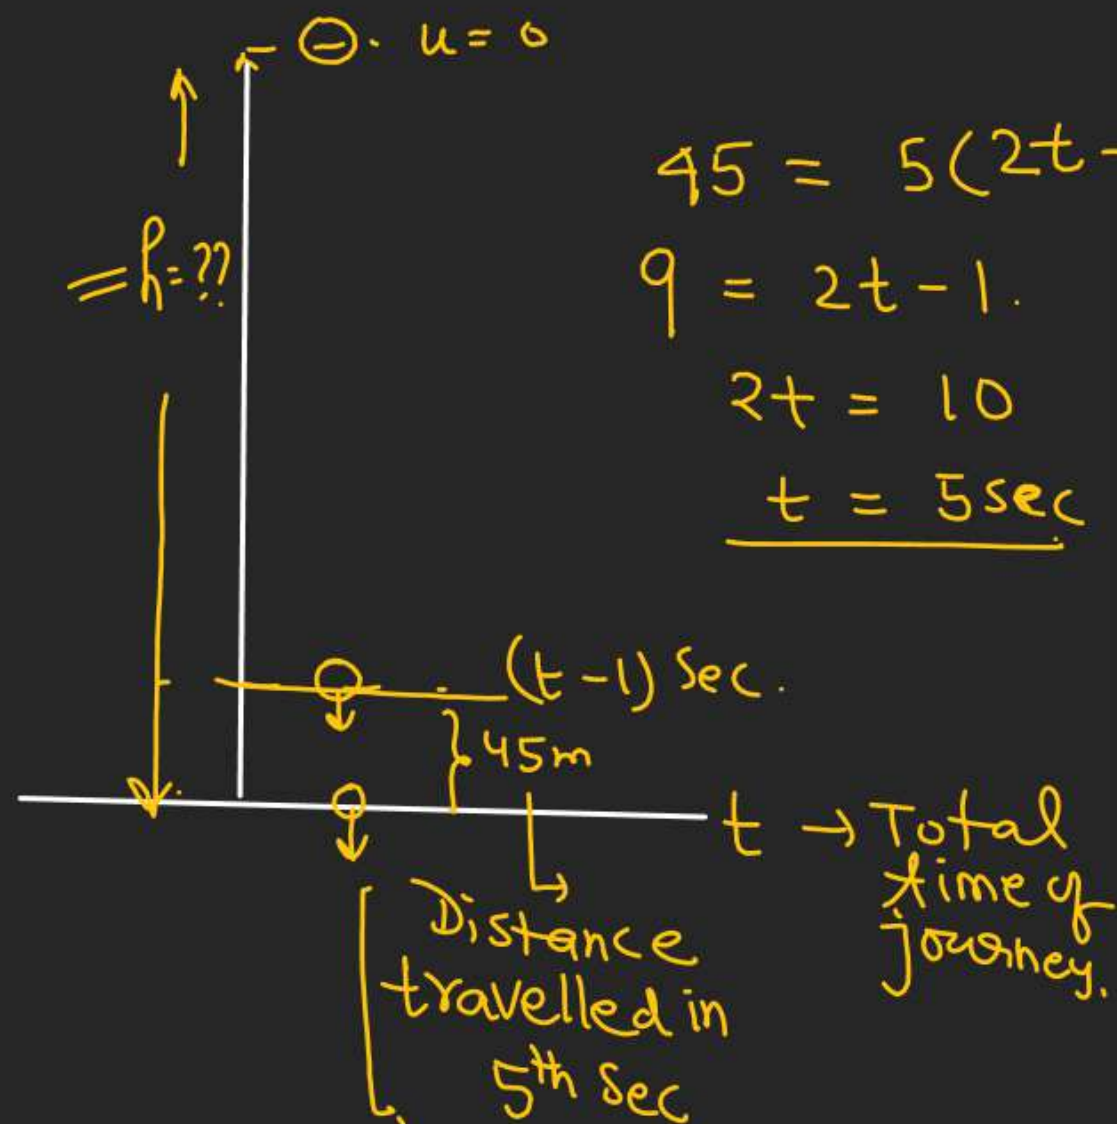 ⊖. u = 0
45 = 5(2t-
9 = 2t - 1.
2t = 10
t = 5 sec
= h = ??
(t - 1) Sec.
45m
t → Total
time of
journey.
Distance
travelled in
5th Sec